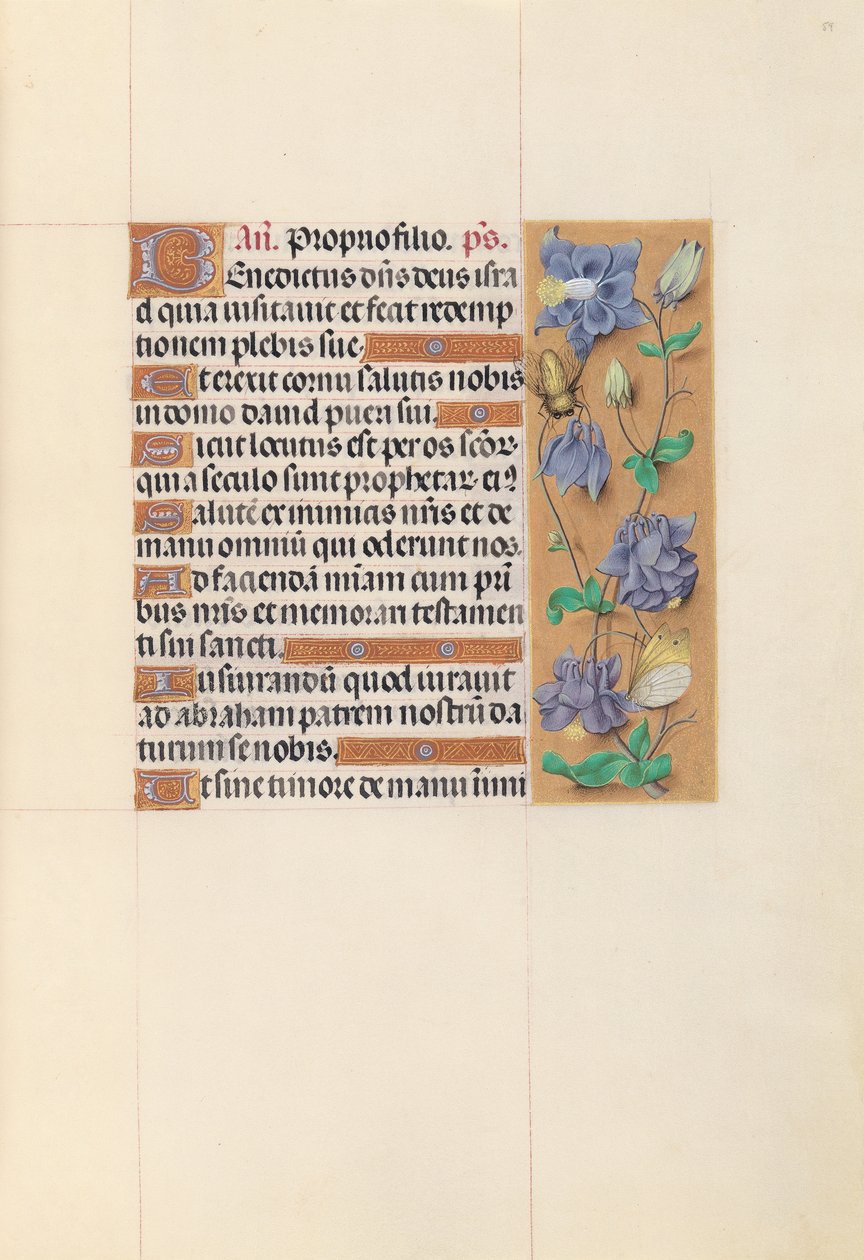 54
Añ. Proprio filio. ps̃.
Benedictus dñs deus isra
el quia uisitauit et fecit redemp
tionem plebis sue.
Et erexit cornu salutis nobis
in domo dauid pueri sui.
Sicut locutus est per os scõr
qui a seculo sunt prophetar ei9
Salutẽ ex inimicis nr̃is et de
manu omniũ qui oderunt nos.
Ad faciendã mĩam cum pr̃i
bus nr̃is et memorari testamen
ti sui sancti.
Iusiurandũ quod iurauit
ad abraham patrem nostrũ da
turum se nobis.
Ut sine timore de manu ĩnimi